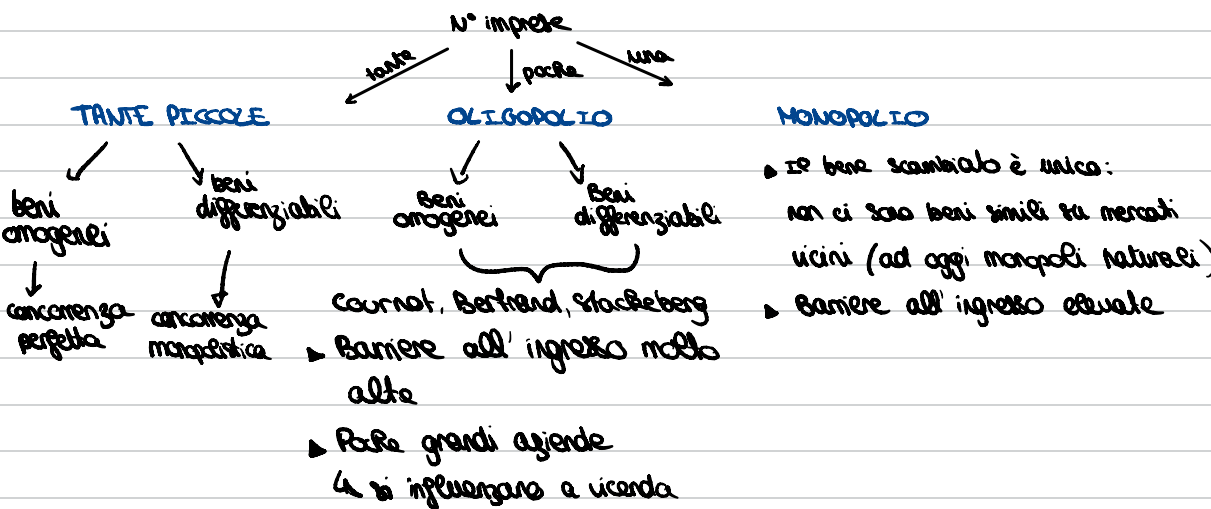 N° imprese
tante
poche
una
TANTE PICCOLE
OLIGOPOLIO
MONOPOLIO
beni
omogenei
beni
differenziabili
concorrenza
perfetta
concorrenza
monopolistica
Beni
omogenei
Beni
differenziabili
Cournot, Bertrand, Stackeberg
▸ Barriere all' ingresso molto
alte
▸ Poche grandi aziende
↳ si influenzano a vicenda
▸ Il bene scambiato è unico:
non ci sono beni simili su mercati
vicini (ad oggi monopoli naturali)
▸ Barriere all' ingresso elevate